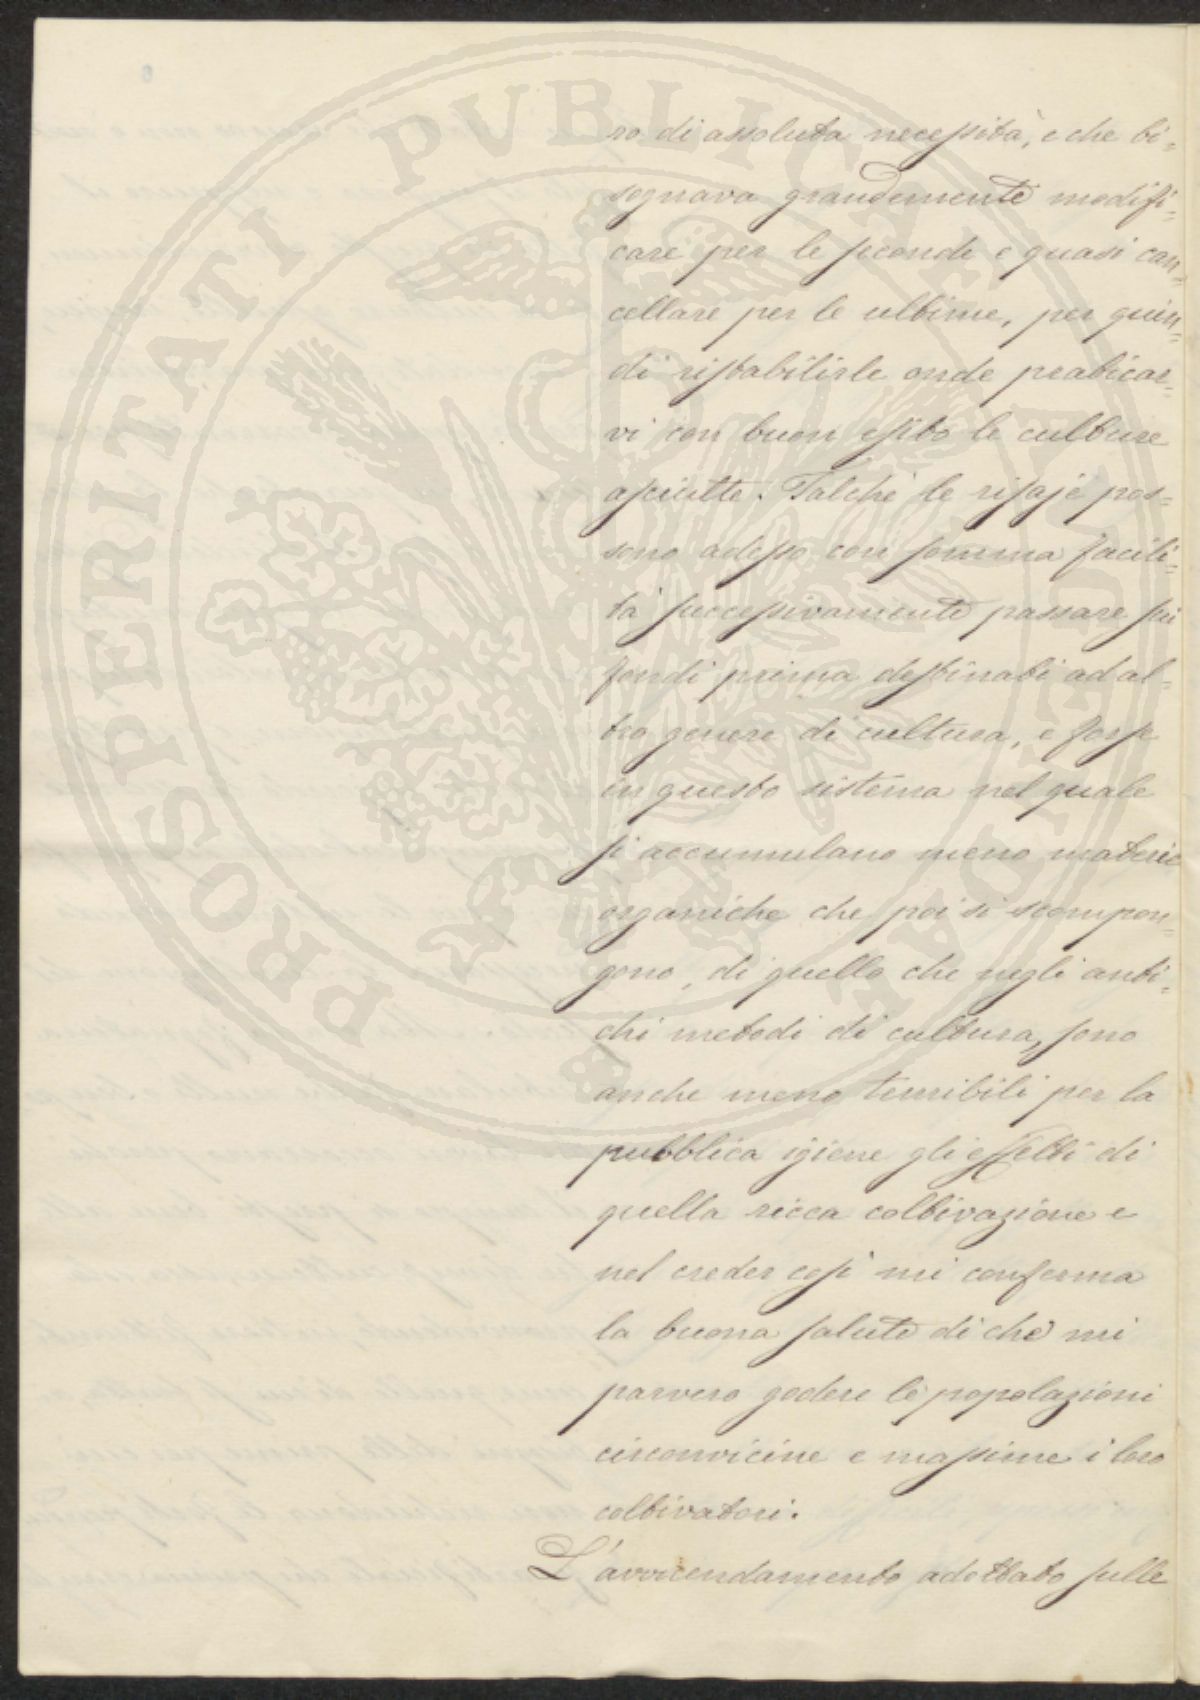 ro di assoluta necessità, e che bi=
sognava grandemente modifi=
care per le seconde e quasi can=
cellare per le ultime, per quin=
di ristabilirle onde praticar=
vi con buon esito le culture
asciutte. Talché le risaje pos=
sono adesso con somma facili=
tà successivamente passare su
fondi prima destinati ad al=
tro genere di cultura, e forse
in questo sistema nel quale
si accumulano meno materie
organiche che poi si scompon=
gono, di quello che negli anti=
chi metodi di cultura, sono
anche meno terribili per la
pubblica igiene gli effetti di
quella ricca coltivazione e
nel creder così mi conferma
la buona salute di che mi
parvero godere le popolazioni
circonvicine e massime i loro
coltivatori.
L'avvicendamento adottato sulle
PROSPERITATI PUBLICAE AUGENDAE